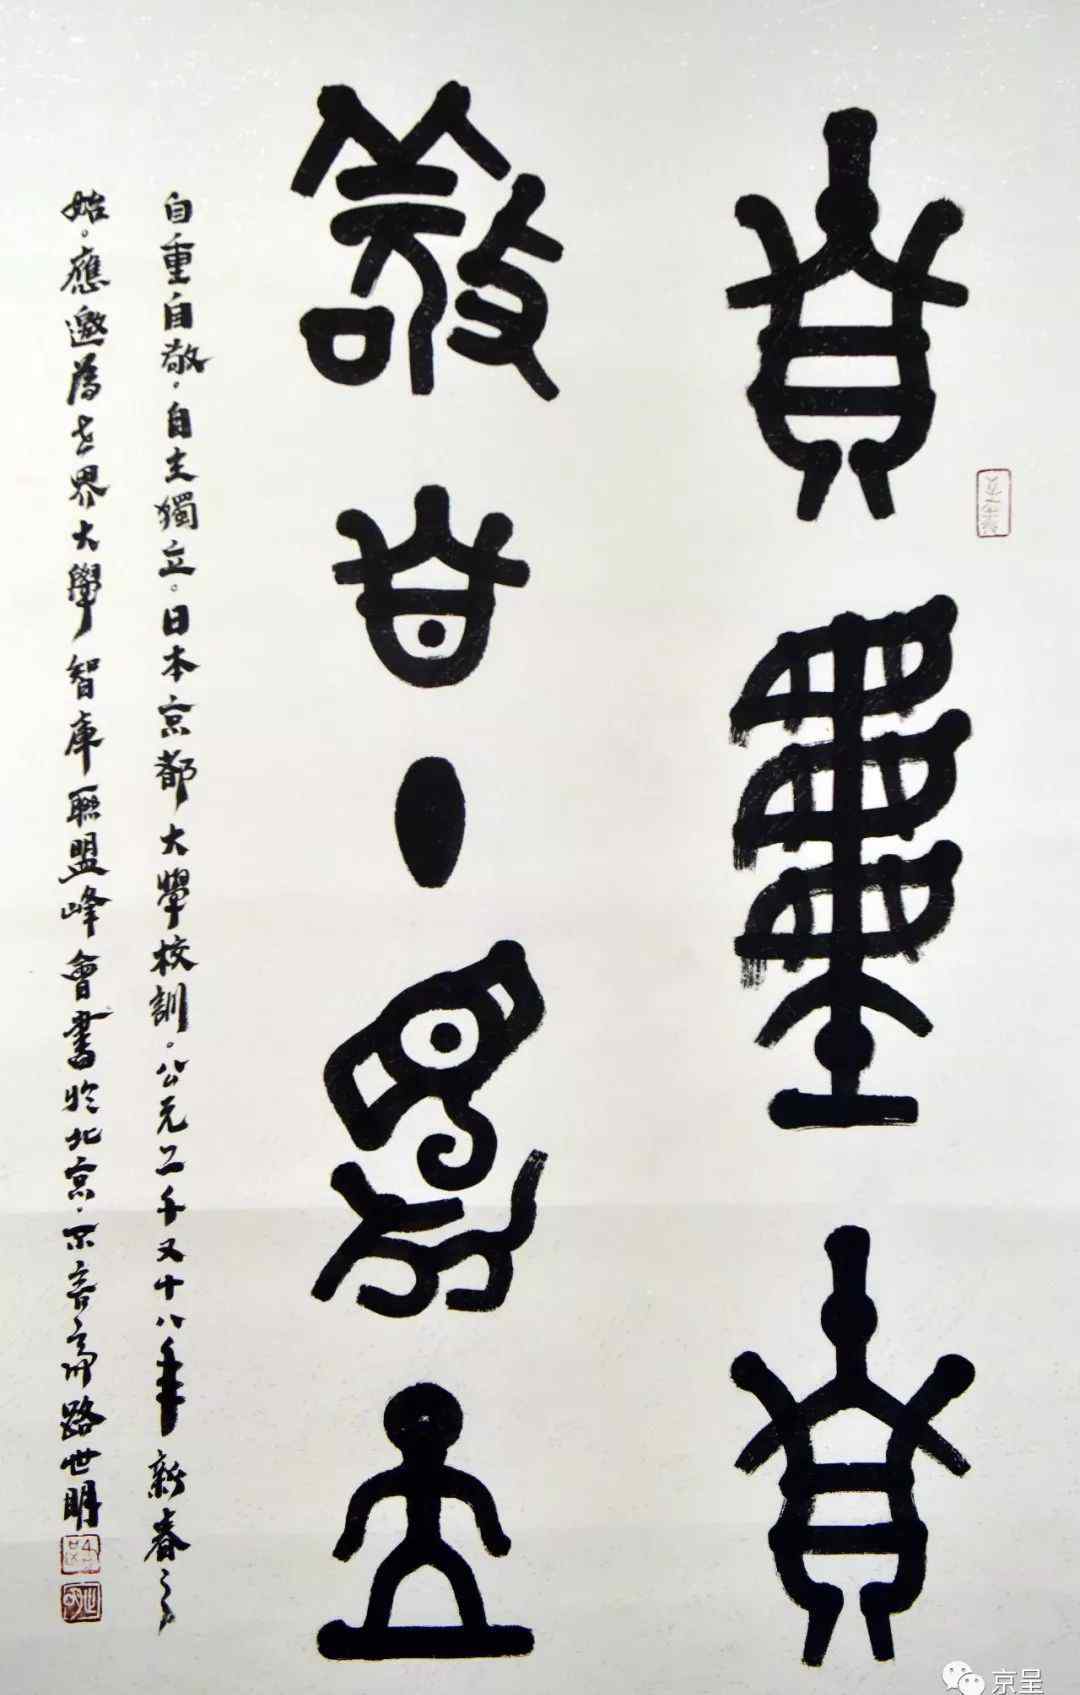 自重自
敬自主獨立
自重自敬，自主獨立。日本京都大學校訓。公元二千又十八年新春之
始。應邀為世界大學智庫聯盟峰會書於北京·不言齋路世明
京呈